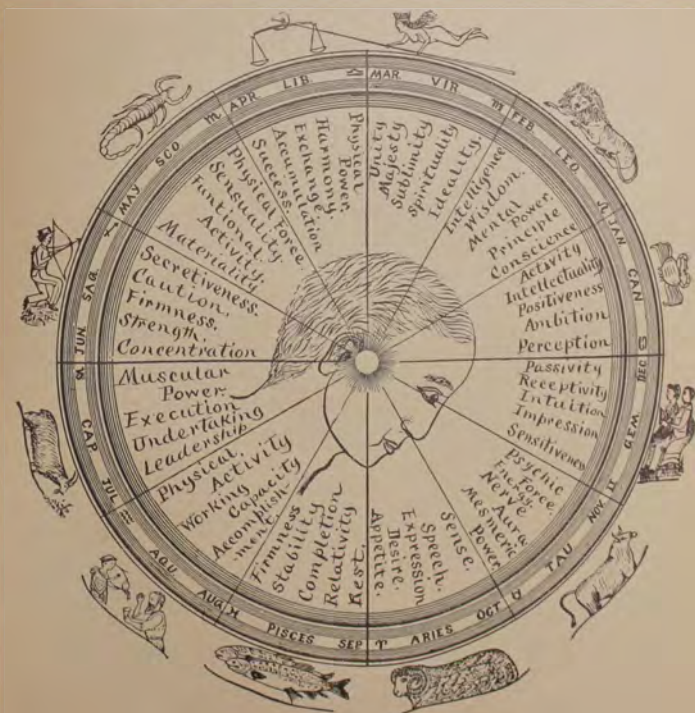 MAR VIR ♍
FEB LEO ♌
JAN CAN ♋
DEC GEM ♊
NOV TAU ♉
OCT ARIES ♈
SEP PISCES ♓
AUG AQU ♒
JUL CAP ♑
JUN SAG ♐
MAY SCO ♏
APR LIB ♎
Unity
Majesty
Sublimity
Spirituality
Ideality.
Intelligence
Wisdom.
Mental
Power.
Principle
Conscience
Activity
Intellectuality
Positiveness
Ambition
Perception
Passivity
Receptivity
Intuition
Impression
Sensitiveness
Psychic
Force.
Energy
Nerve
Aura
Mesmeric
Power.
Sense.
Speech.
Expression
Desire.
Appetite.
Rest.
Relativity
Completion
Stability
Firmness
Physical.
Activity
Working
Capacity
Accomplish-
ment.
Muscular
Power.
Execution
Undertaking
Leadership
Secretiveness.
Caution.
Firmness.
Strength.
Concentration
Physical Force.
Sensuality.
Funtional
Activity.
Materiality
Physical
Power.
Harmony.
Exchange.
Accumulation
Success.